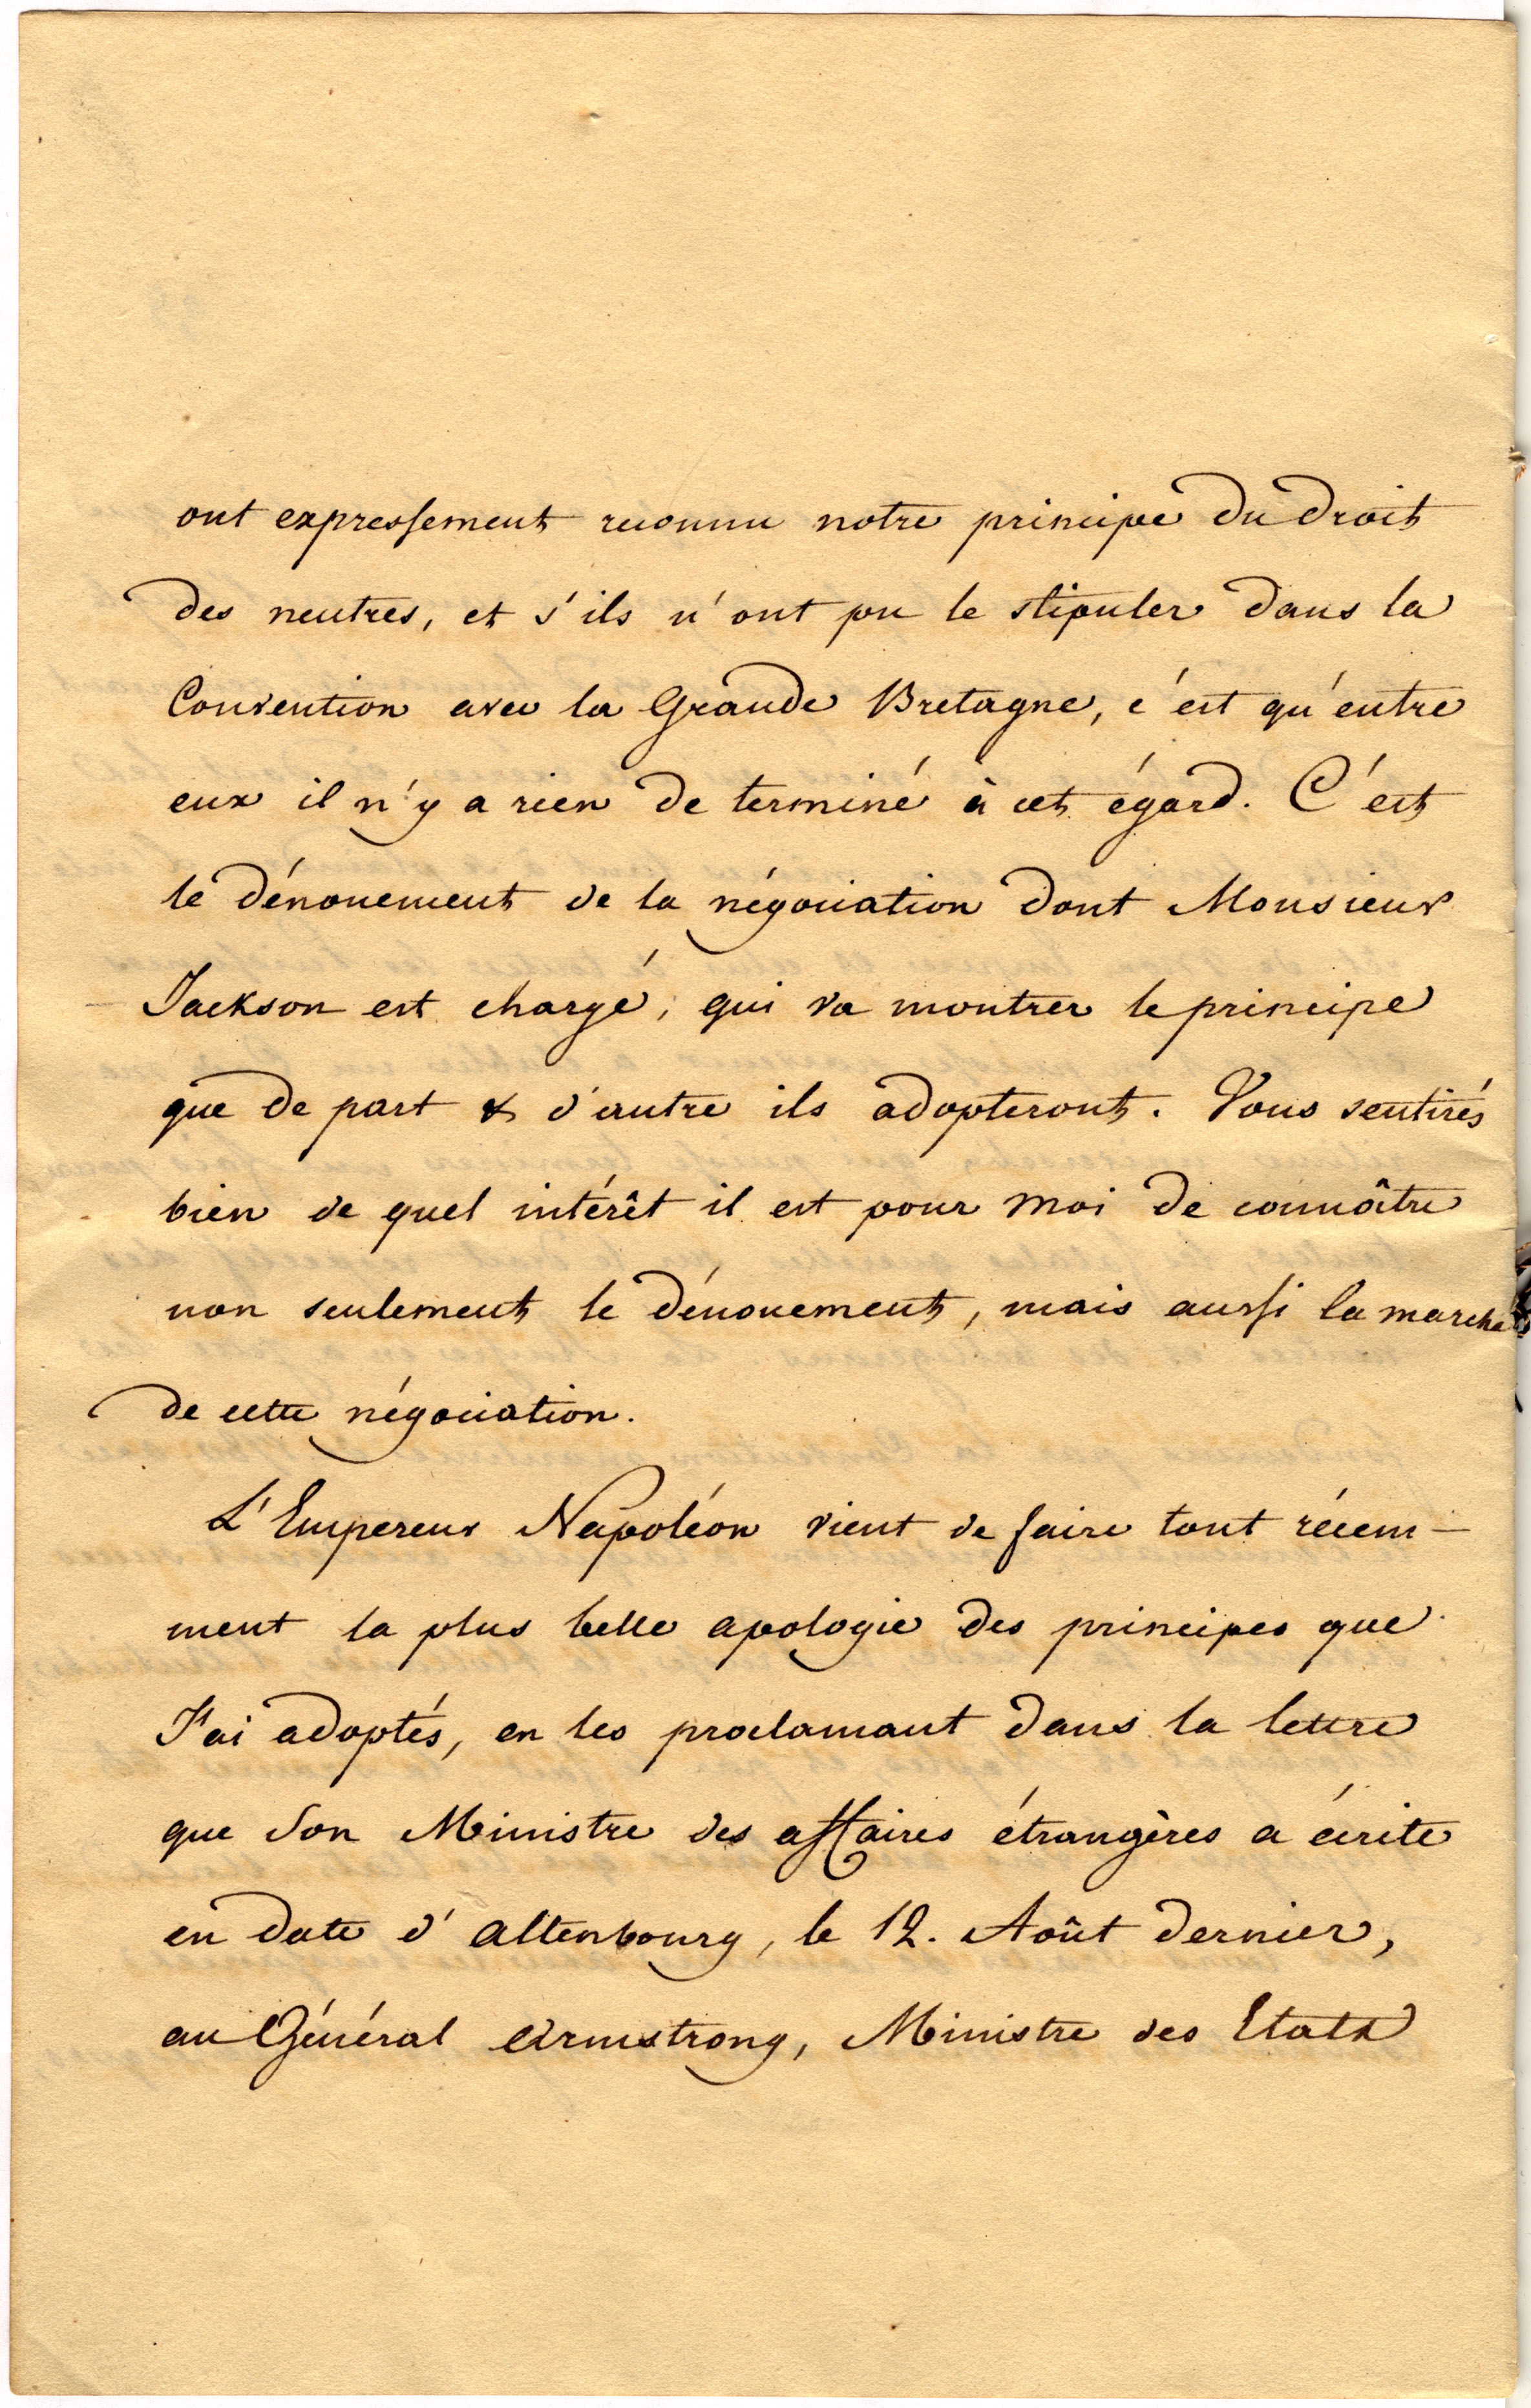 ont expressement reconnu notre principe du droit
des neutres, et s'ils n'ont pu le stipuler dans la
Convention avec la Grande Bretagne, c'est qu'entre
eux il n'y a rien de terminé à cet égard. C'est
le dénouement de la négociation dont Monsieur
Jackson est chargé, qui va montrer le principe
que de part & d'autre ils adopteront. Vous sentirés
bien de quel intérêt il est pour moi de connoître
non seulement le dénouement, mais aussi la marche
de cette négociation.
L'Empereur Napoléon vient de faire tout récem-
ment la plus belle apologie des principes que
J'ai adoptés, en les proclamant dans la lettre
que Son Ministre des affaires étrangères a écrite
en date d'Altenbourg, le 12. Août dernier,
au Général Armstrong, Ministre des Etats